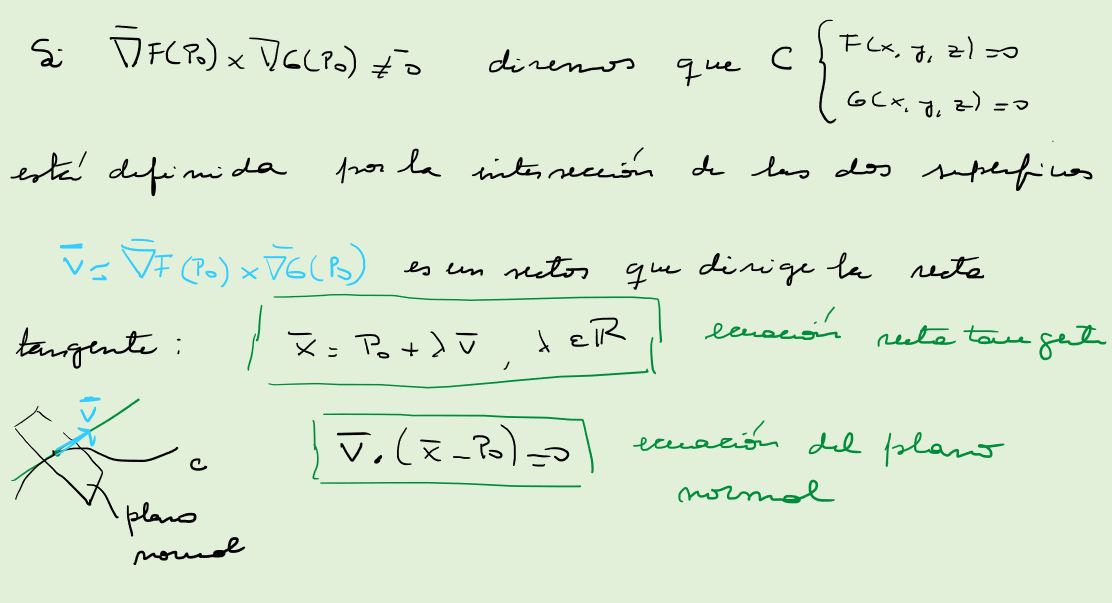 Si ∇̄F(P₀) × ∇̄G(P₀) ≠ 0̄ diremos que C { F(x, y, z) = 0
G(x, y, z) = 0
está definida por la intersección de las dos superficies
v̄ = ∇̄F(P₀) × ∇̄G(P₀) es un vector que dirige la recta
tangente: x̄ = P₀ + λ v̄, λ ∈ ℝ ecuación recta tangente
v̄
v̄ · (x̄ − P₀) = 0 ecuación del plano
normal
c
plano
normal